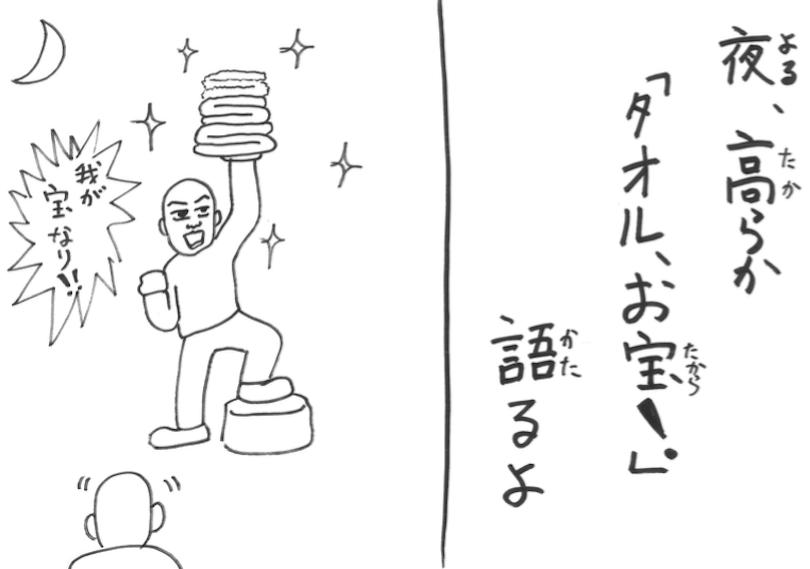 夜、高らか
「タオル、お宝！」
語るよ
我が
宝なり!!
よる
たか
たから
かた